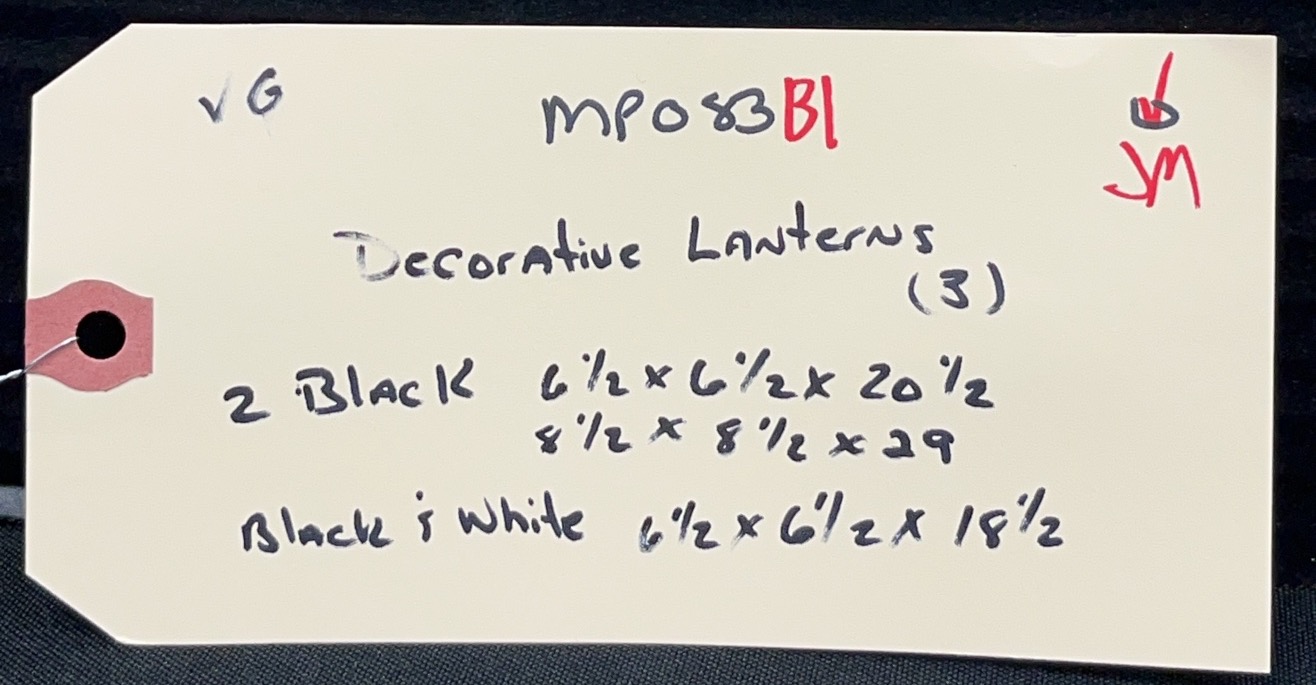 VG MP083B1
JM
Decorative Lanterns
(3)
2 Black 6 1/2 x 6 1/2 x 20 1/2
8 1/2 x 8 1/2 x 29
Black & White 6 1/2 x 6 1/2 x 18 1/2